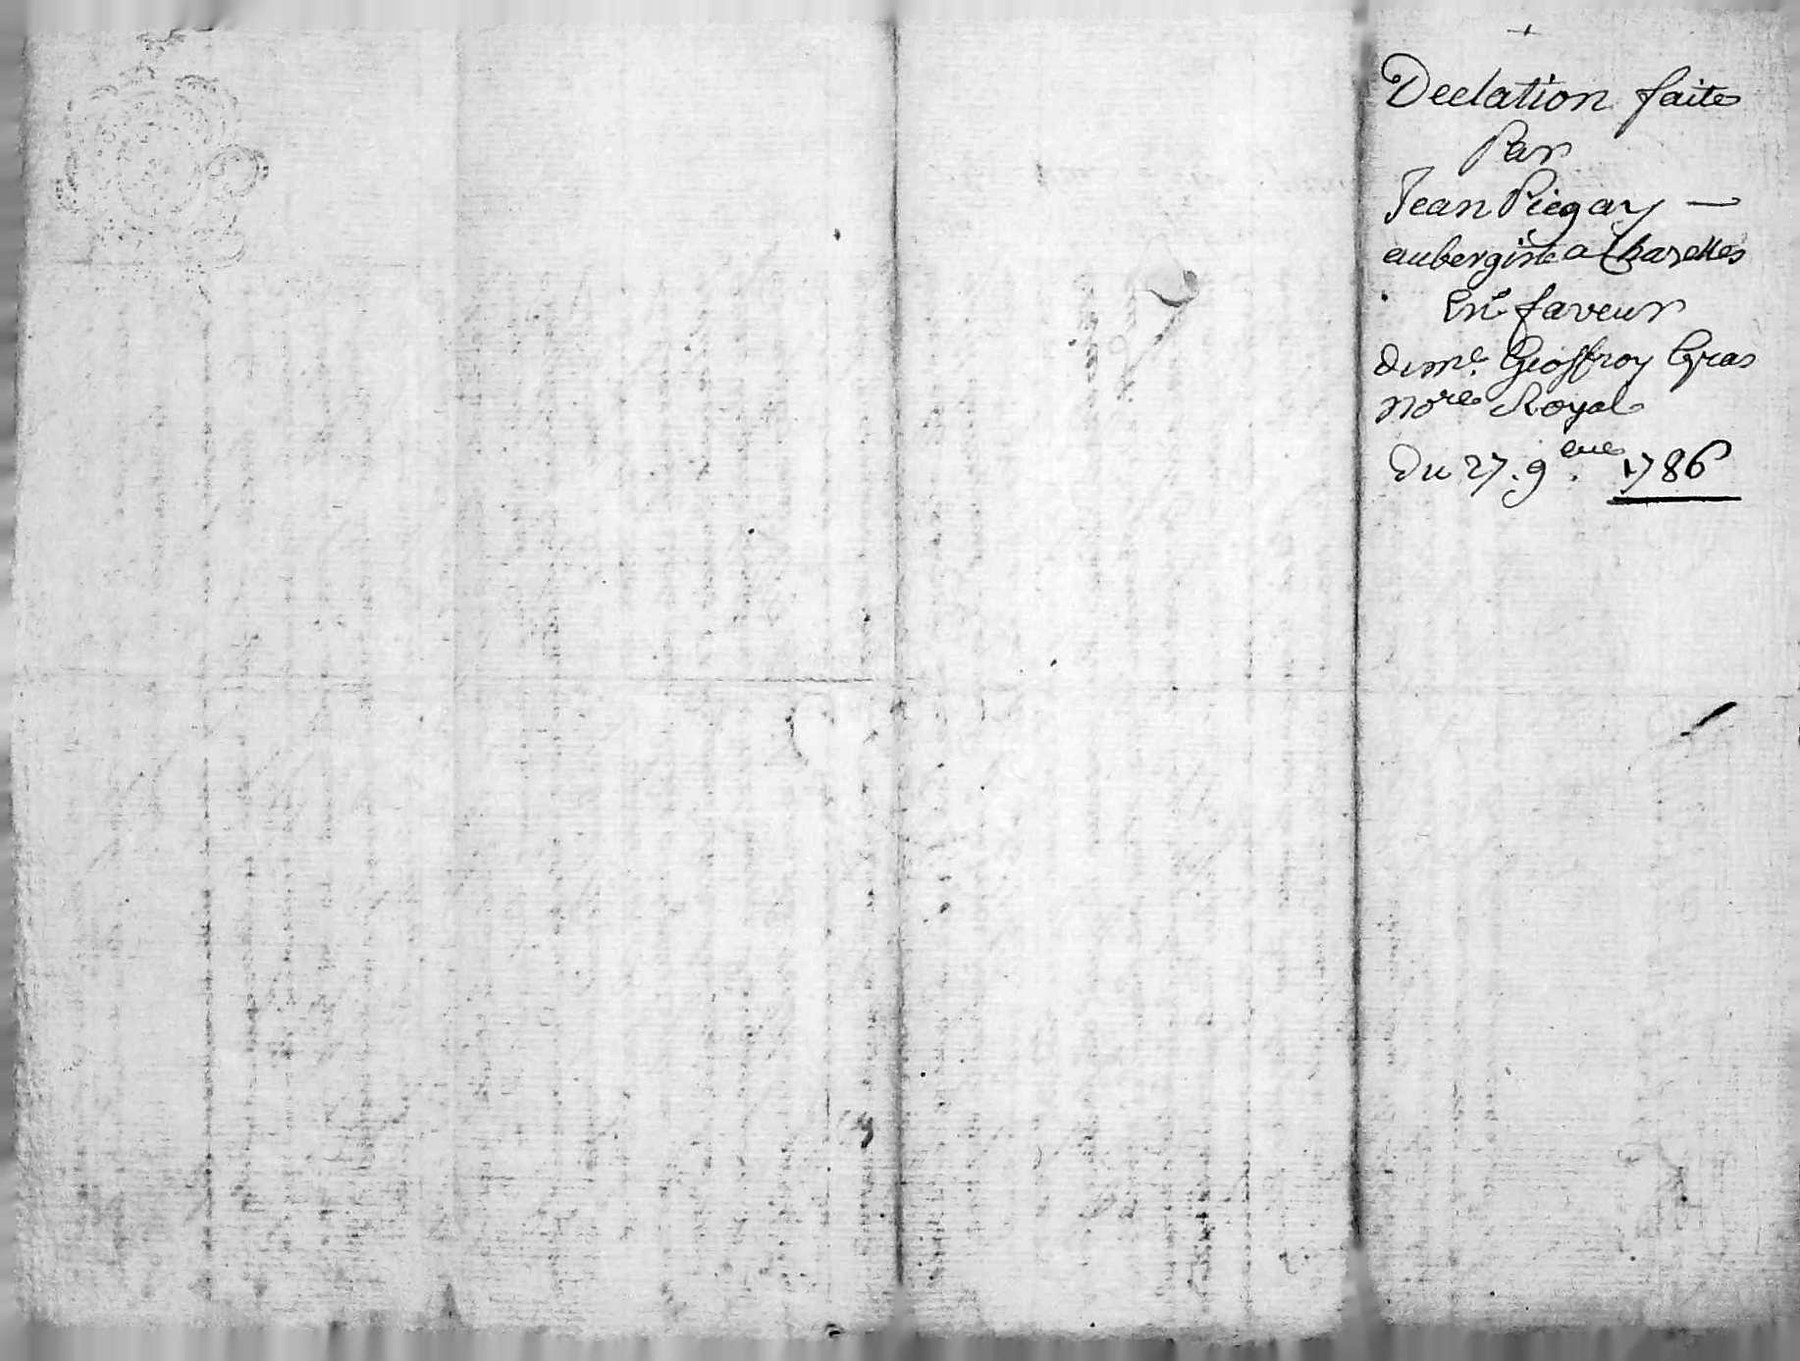 +
Declation faite
Par
Jean Piegay —
aubergiste a Charettes
En faveur
de me. Geoffroy Gras
nore Royal
Du 27. 9eme. 1786